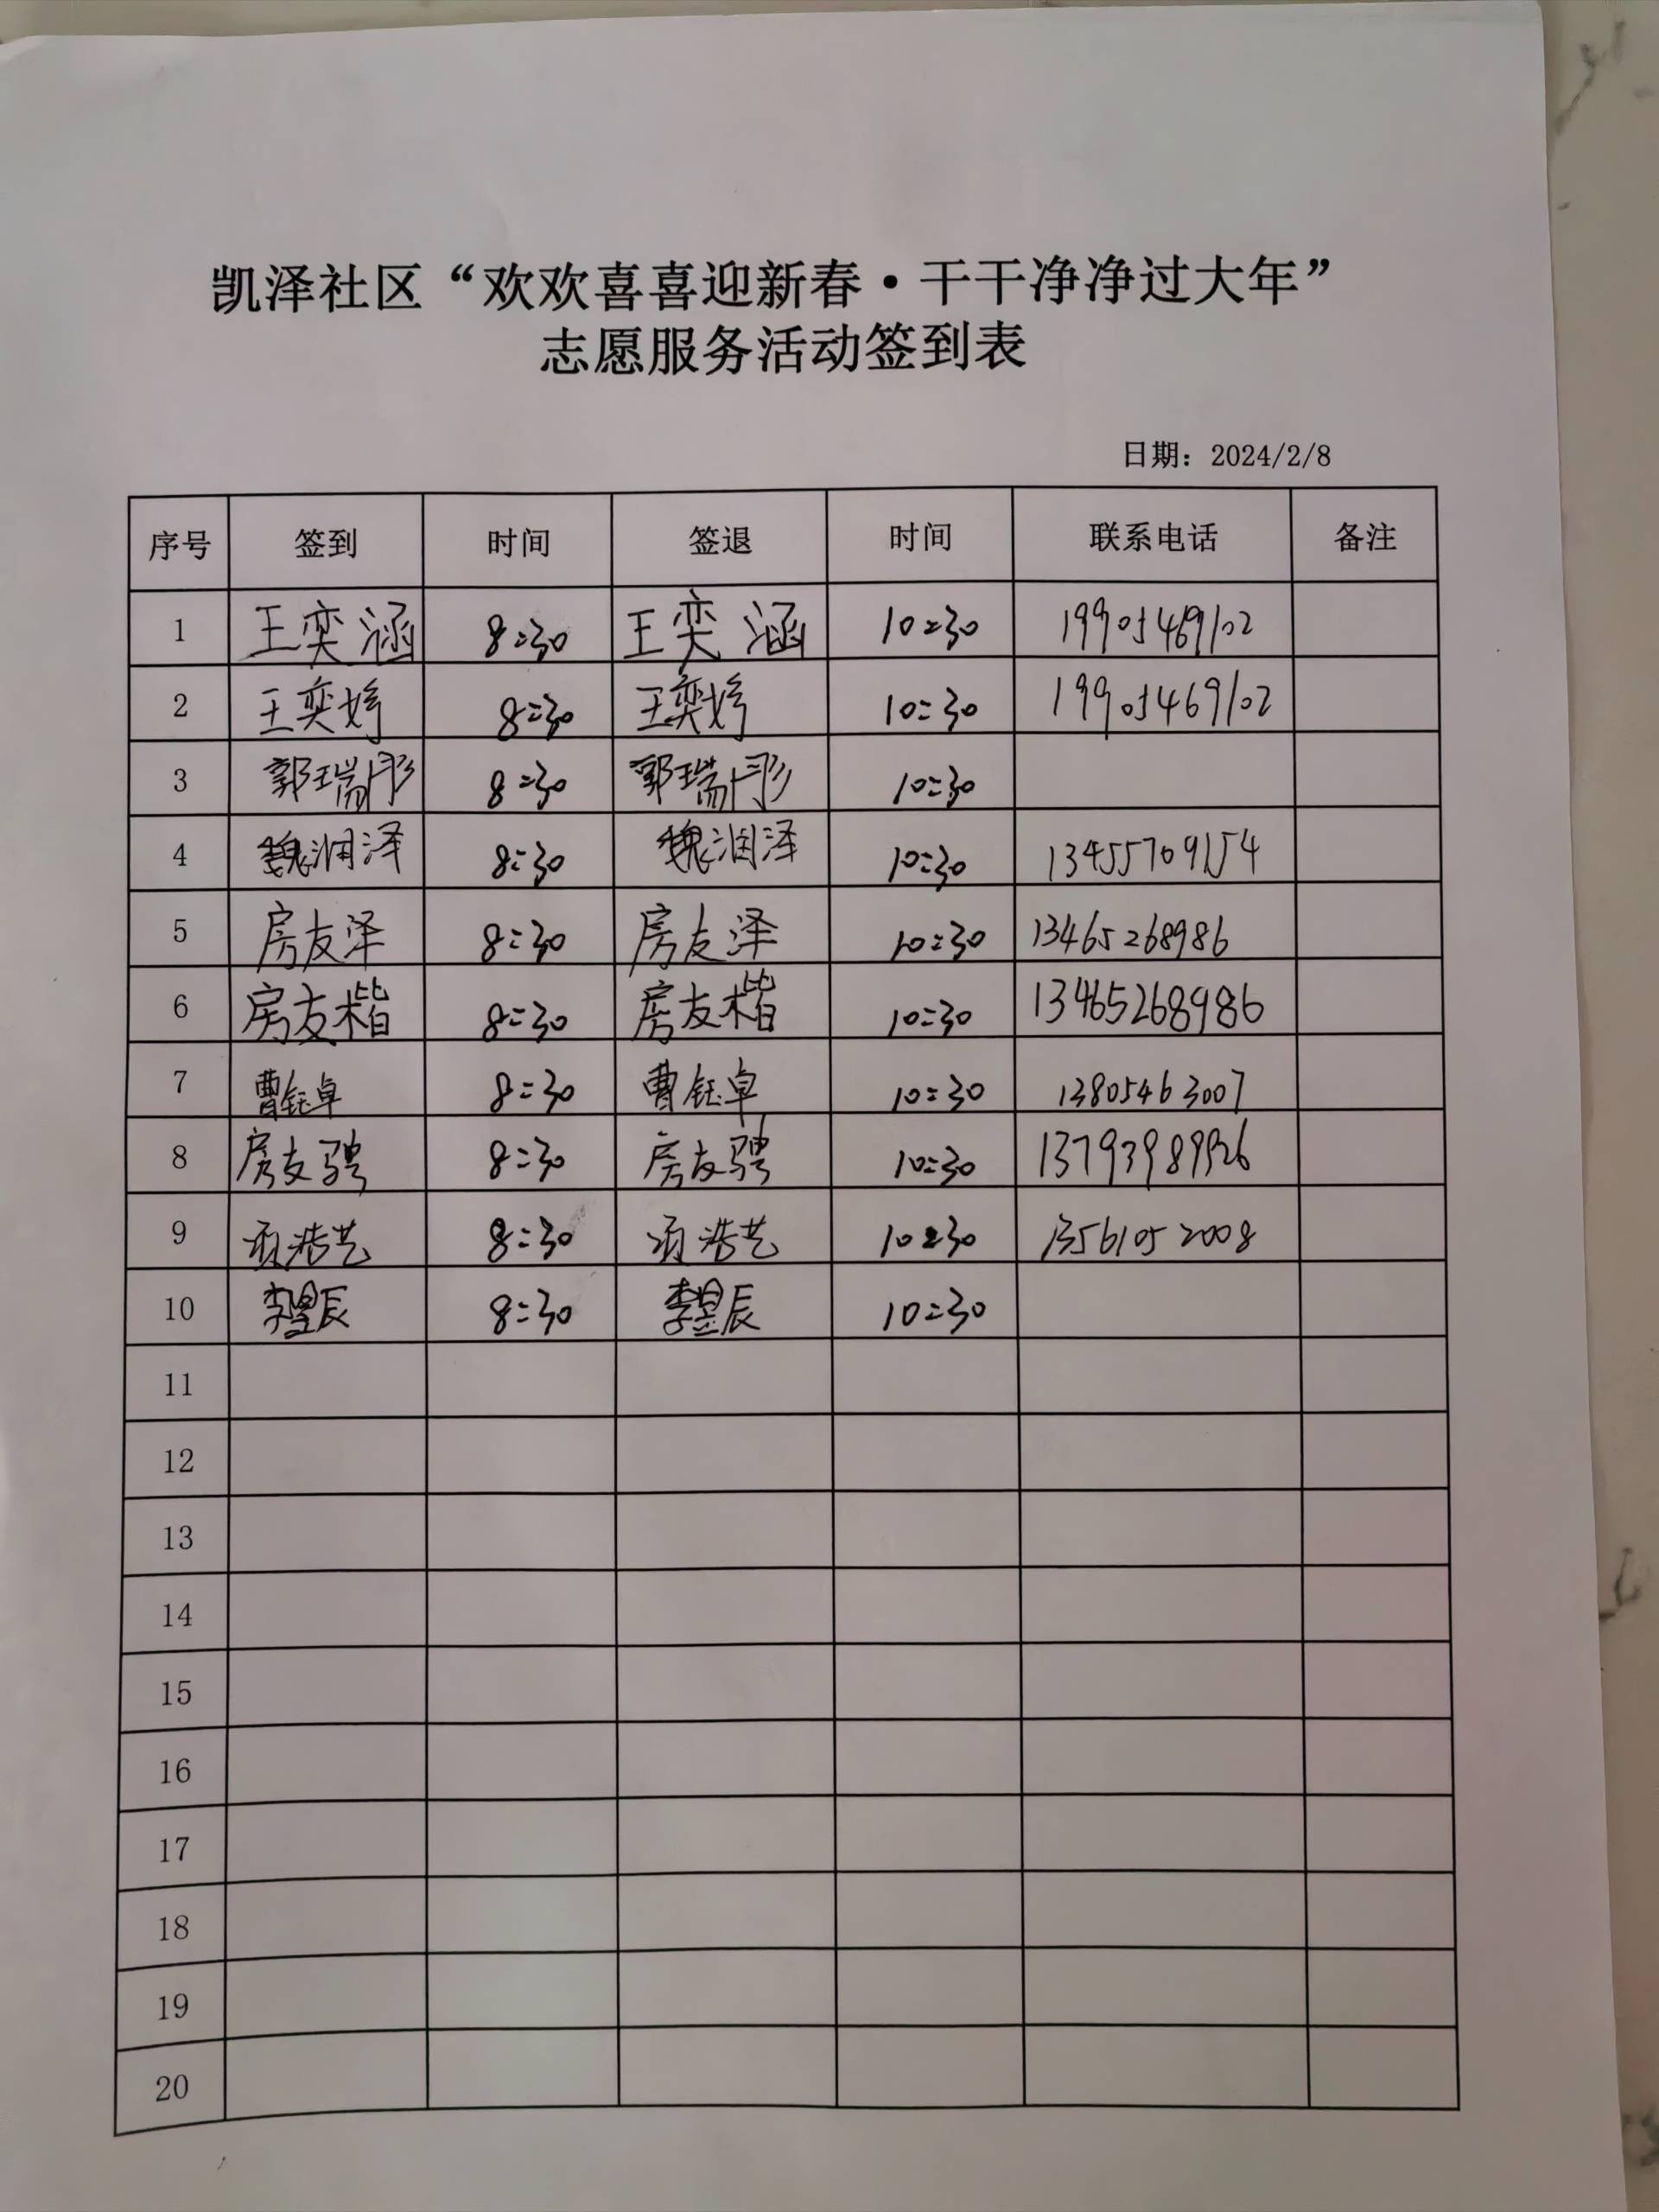 凯泽社区“欢欢喜喜迎新春·干干净净过大年”
志愿服务活动签到表
日期：2024/2/8
序号 签到 时间 签退 时间 联系电话 备注
1 王奕涵 8:30 王奕涵 10:30 19905469102
2 王奕婷 8:30 王奕婷 10:30 19905469102
3 郭瑞彤 8:30 郭瑞彤 10:30
4 魏润泽 8:30 魏润泽 10:30 13455709154
5 房友泽 8:30 房友泽 10:30 13465268986
6 房友楷 8:30 房友楷 10:30 13465268986
7 曹钰卓 8:30 曹钰卓 10:30 13805463007
8 房友骋 8:30 房友骋 10:30
9 项浩艺 8:30 项浩艺 10:30 13561052008
10 李昱辰 8:30 李昱辰 10:30
11
12
13
14
15
16
17
18
19
20